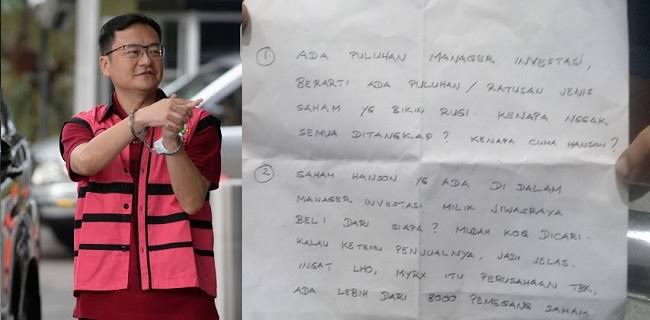 1 ADA PULUHAN MANAGER INVESTASI,
BERARTI ADA PULUHAN / RATUSAN JENIS
SAHAM YG BIKIN RUGI. KENAPA NGGAK
SEMUA DITANGKAP? KENAPA CUMA HANSON?
2 SAHAM HANSON YG ADA DI DALAM
MANAGER INVESTASI MILIK JIWASRAYA
BELI DARI SIAPA? MUDAH KOQ DICARI.
KALAU KETEMU PENJUALNYA, JADI JELAS.
INGAT LHO, MYRX ITU PERUSAHAAN TBK,
ADA LEBIH DARI 8000 PEMEGANG SAHAM.